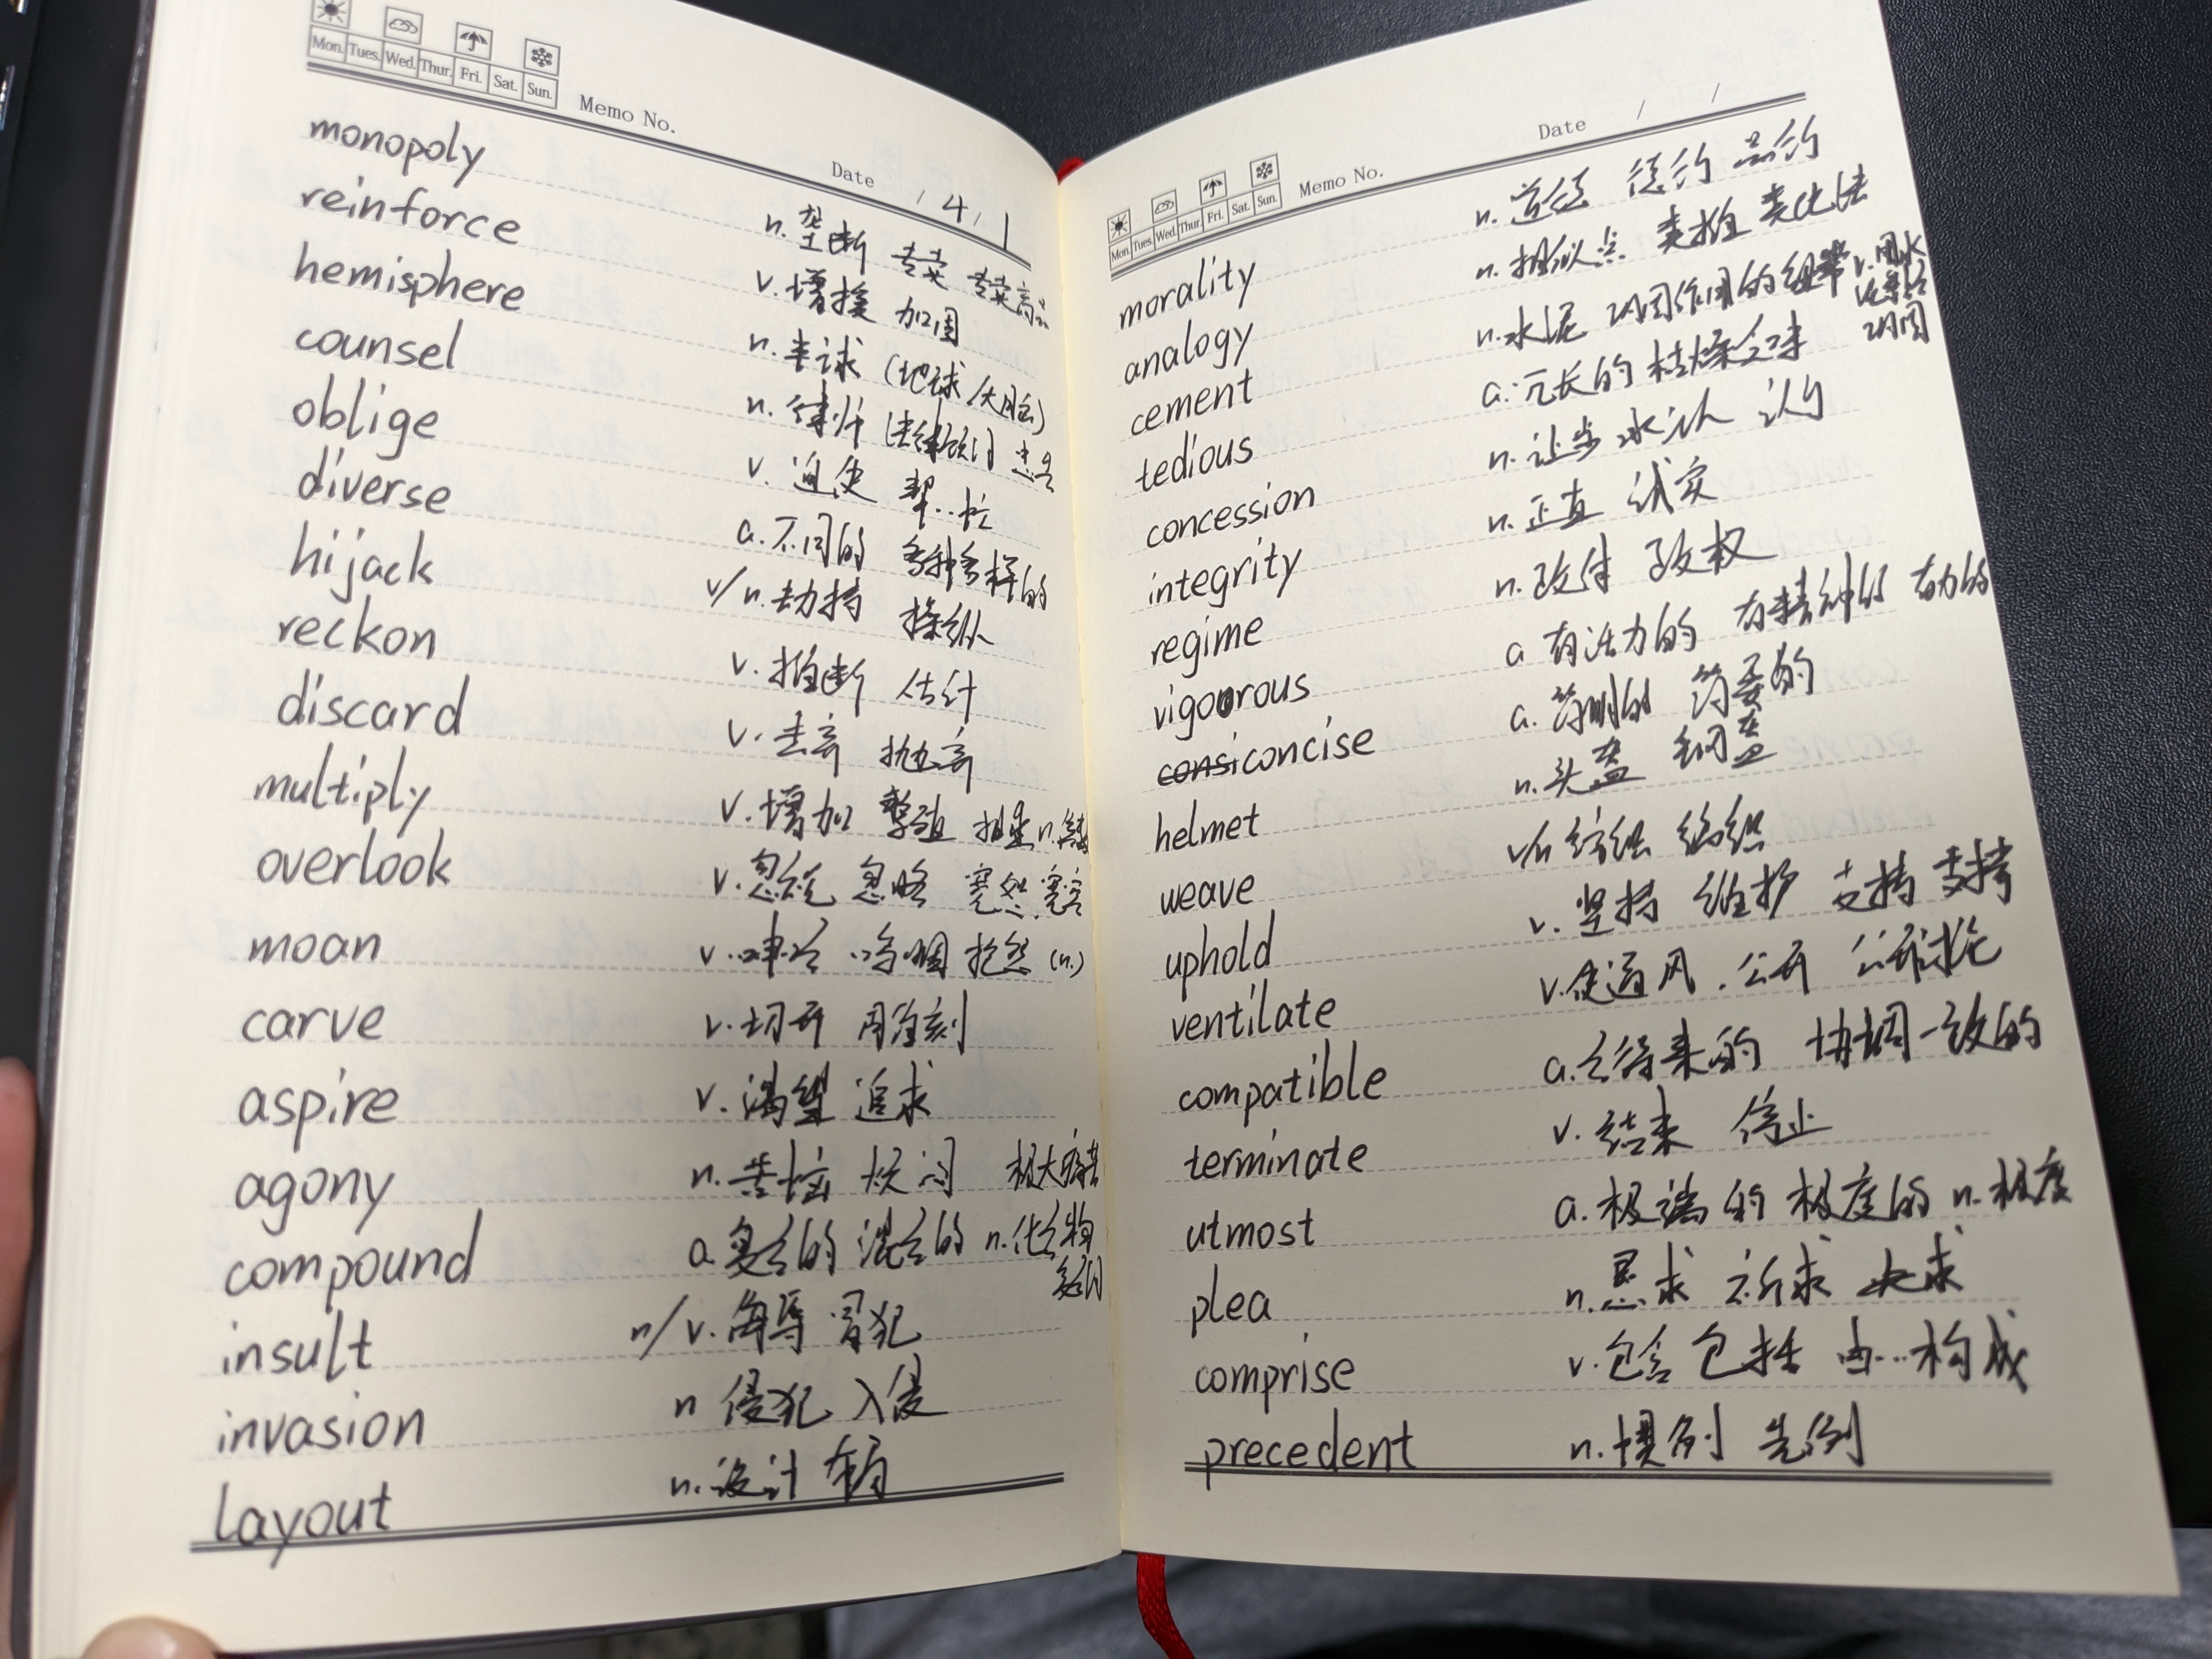 Mon. Tues. Wed. Thur. Fri. Sat. Sun. Memo No. Date / 4 / 1
monopoly n. 垄断 专卖 专卖商品
reinforce v. 增援 加固
hemisphere n. 半球 (地球/大脑)
counsel n. 律师 法律顾问
oblige v. 迫使 帮..忙
diverse a. 不同的 多种多样的
hijack v/n. 劫持 操纵
reckon v. 推断 估计
discard v. 丢弃 抛弃
multiply v. 增加 繁殖
overlook v. 忽视 忽略 宽恕 宽容
moan v. 呻吟 呜咽 抱怨 (n.)
carve v. 切开 雕刻
aspire v. 渴望 追求
agony n. 苦恼 烦闷 极大痛苦
compound a. 复合的 混合的 n. 化合物
insult n/v. 侮辱 冒犯
invasion n 侵犯 入侵
layout n. 设计 布局
Mon. Tues. Wed. Thur. Fri. Sat. Sun. Memo No. Date / /
morality n. 道德 德行 品行
analogy n. 相似点 类推 类比法
cement n. 水泥 巩固作用的纽带 v. 用水泥 巩固
tedious a. 冗长的 枯燥
concession n. 让步 承认 认可
integrity n. 正直 诚实
regime n. 政体 政权
vigorous a 有活力的 有精神的 有力的
consi concise a. 简明的 简要的
helmet n. 头盔 钢盔
weave v/n 纺织 编织
uphold v. 坚持 维护 支持 支持
ventilate v. 使通风. 公开 公开讨论
compatible a. 合得来的 协调一致的
terminate v. 结束 停止
utmost a. 极端的 极度的 n. 极度
plea n. 恳求 祈求
comprise v. 包含 包括 由...构成
precedent n. 惯例 先例